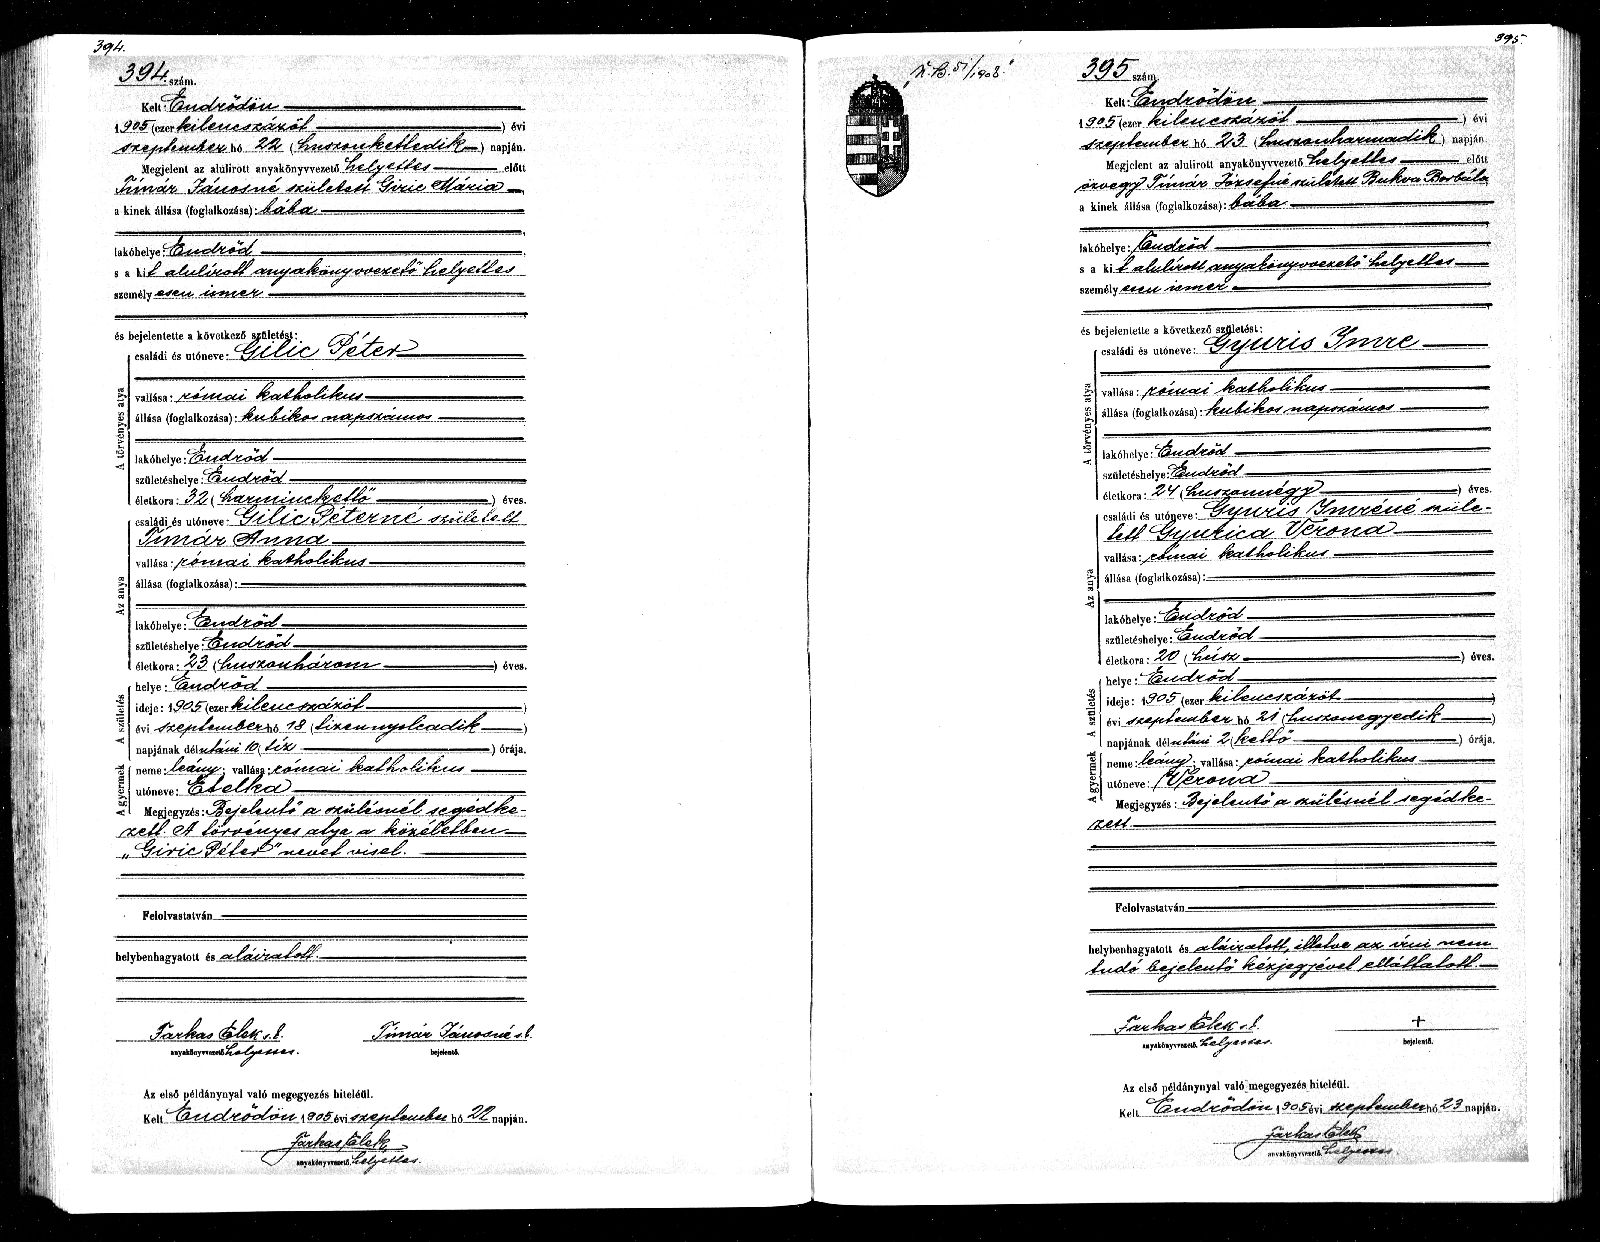 394.
394. szám.
Kelt: Endrődön
1905 (ezer kilencszázöt ) évi
szeptember hó 22 (huszonkettedik ) napján.
Megjelent az alulirott anyakönyvvezető helyettes előtt
Tímár Jánosné született Giric Mária
a kinek állása (foglalkozása): bába
lakóhelye: Endrőd
s a kit alulírott anyakönyvvezető helyettes
személyesen ismer
és bejelentette a következő születést:
A törvényes atya
családi és utóneve: Gilic Péter
vallása: római katholikus
állása (foglalkozása): kubikos napszámos
lakóhelye: Endrőd
születéshelye: Endrőd
életkora: 32 (harminckettő ) éves.
Az anya
családi és utóneve: Gilic Péterné született
Tímár Anna
vallása: római katholikus
állása (foglalkozása):
lakóhelye: Endrőd
születéshelye: Endrőd
életkora: 23 (huszonhárom ) éves.
A születés
helye: Endrőd
ideje: 1905 (ezer kilencszázöt )
évi szeptember hó 18 (tizennyolcadik )
napjának délutáni 10 (tíz ) órája.
A gyermek
neme: leány; vallása: római katholikus
utóneve: Etelka
Megjegyzés: Bejelentő a szülésnél segédke-
zett. A törvényes atya a közéletben
„Giric Péter" nevet visel.
Felolvastatván
helybenhagyatott és aláiratott.
Farkas Elek s.k. Tímár Jánosné s.k.
anyakönyvvezető helyettes. bejelentő.
Az első példánynyal való megegyezés hiteléül.
Kelt Endrődön 1905 évi szeptember hó 22 napján.
Farkas Elek
anyakönyvvezető helyettes.
51/1908
395
395 szám
Kelt: Endrődön
1905 (ezer kilencszázöt ) évi
szeptember hó 23 (huszonharmadik ) napján.
Megjelent az alulirott anyakönyvvezető helyettes előtt
özvegy Tímár Józsefné született Bukva Borbála
a kinek állása (foglalkozása): bába
lakóhelye: Endrőd
s a kit alulírott anyakönyvvezető helyettes
személyesen ismer
és bejelentette a következő születést:
A törvényes atya
családi és utóneve: Gyuris Imre
vallása: római katholikus
állása (foglalkozása): kubikos napszámos
lakóhelye: Endrőd
születéshelye: Endrőd
életkora: 24 (huszonnégy ) éves.
Az anya
családi és utóneve: Gyuris Imréné szüle-
tett Gyurica Verona
vallása: római katholikus
állása (foglalkozása):
lakóhelye: Endrőd
születéshelye: Endrőd
életkora: 20 (húsz ) éves.
A születés
helye: Endrőd
ideje: 1905 (ezer kilencszázöt )
évi szeptember hó 21 (huszonegyedik )
napjának délutáni 2 (kettő ) órája.
A gyermek
neme: leány; vallása: római katholikus
utóneve: Verona
Megjegyzés: Bejelentő a szülésnél segédke-
zett
Felolvastatván
helybenhagyatott és aláiratott, illetve az írni nem
tudó bejelentő kézjegyével elláttatott.
Farkas Elek s.k. +
anyakönyvvezető helyettes. bejelentő.
Az első példánynyal való megegyezés hiteléül.
Kelt Endrődön 1905 évi szeptember hó 23 napján.
Farkas Elek
anyakönyvvezető helyettes